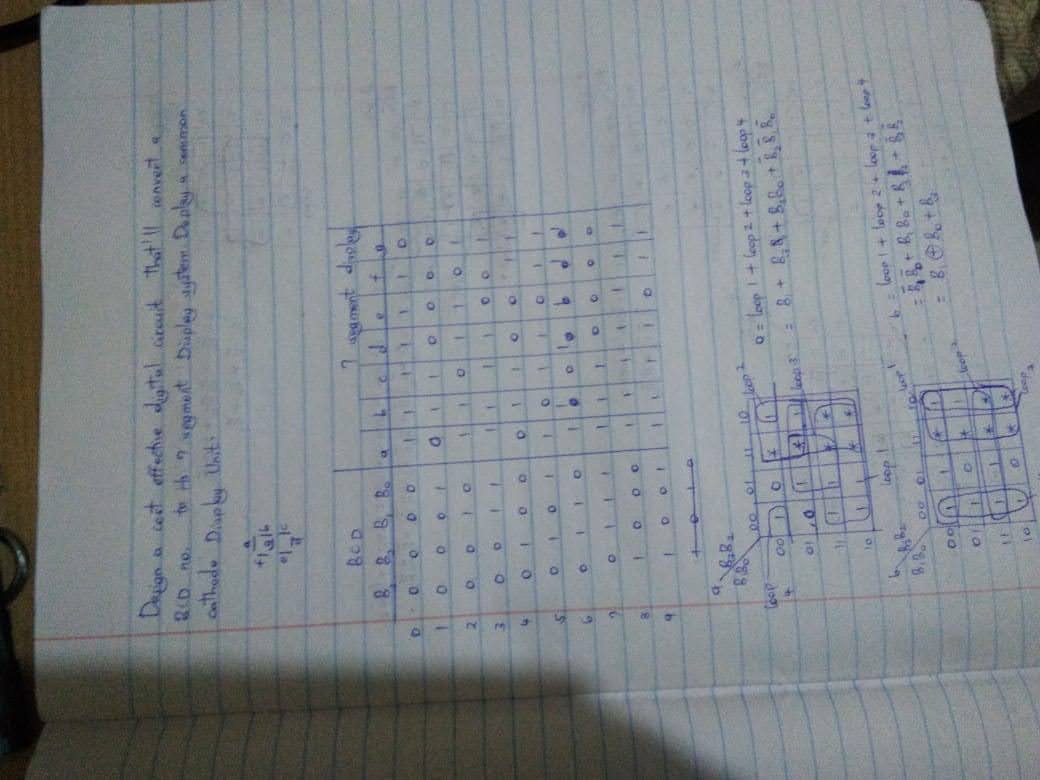 Design a cost effective digital circuit that'll convert a
BCD no. to its 7 segment Display system. Display a common
cathode Display Unit.
a
f | g | b
e | d | c
BCD 7 segment display
B3 B2 B1 B0 a b c d e f g
0 0 0 0 0 1 1 1 1 1 1 0
1 0 0 0 1 0 1 1 0 0 0 0
2 0 0 1 0 1 1 0 1 1 0 1
3 0 0 1 1 1 1 1 1 0 0 1
4 0 1 0 0 0 1 1 0 0 1 1
5 0 1 0 1 1 0 1 1 0 1 1
6 0 1 1 0
7 0 1 1 1 1 1 1
8 1 0 0 0 1 1 1 1 1 1 1
9 1 0 0 1 1 1 1 1 0 1 1
1 0 1 0
a B3B2
B1B0 00 01 11 10 loop 2
00 1 0 * 1
01
11
10
loop 4
loop 3
loop 1
a = loop 1 + loop 2 + loop 3 + loop 4
b B3B2
B1B0 00 01 11 10 loop 1
00 1 1 *
01 1 0 * 1
11 1 1 * *
10 1 0 * *
loop 2
loop 3
b = loop 1 + loop 2 + loop 3 + loop 4
= B1 ⊕ B0 + B2